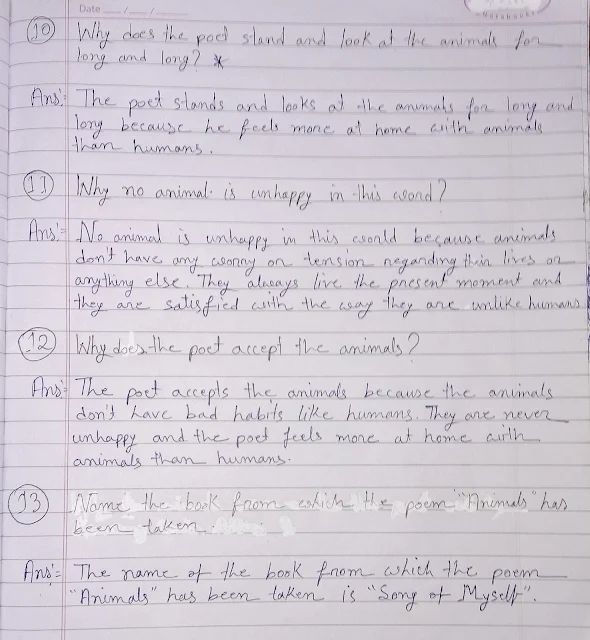 Date __/__/__
Notebooks
10 Why does the poet stand and look at the animals for
long and long? *
Ans:- The poet stands and looks at the animals for long and
long because he feels more at home with animals
than humans.
11 Why no animal is unhappy in this world?
Ans:- No animal is unhappy in this world because animals
don't have any worry or tension regarding thin lives or
anything else. They always live the present moment and
they are satisfied with the way they are unlike humans
12 Why does the poet accept the animals?
Ans:- The poet accepts the animals because the animals
don't have bad habits like humans. They are never
unhappy and the poet feels more at home with
animals than humans.
13 Name the book from which the poem "Animals" has
been taken
Ans:- The name of the book from which the poem
"Animals" has been taken is "Song of Myself".